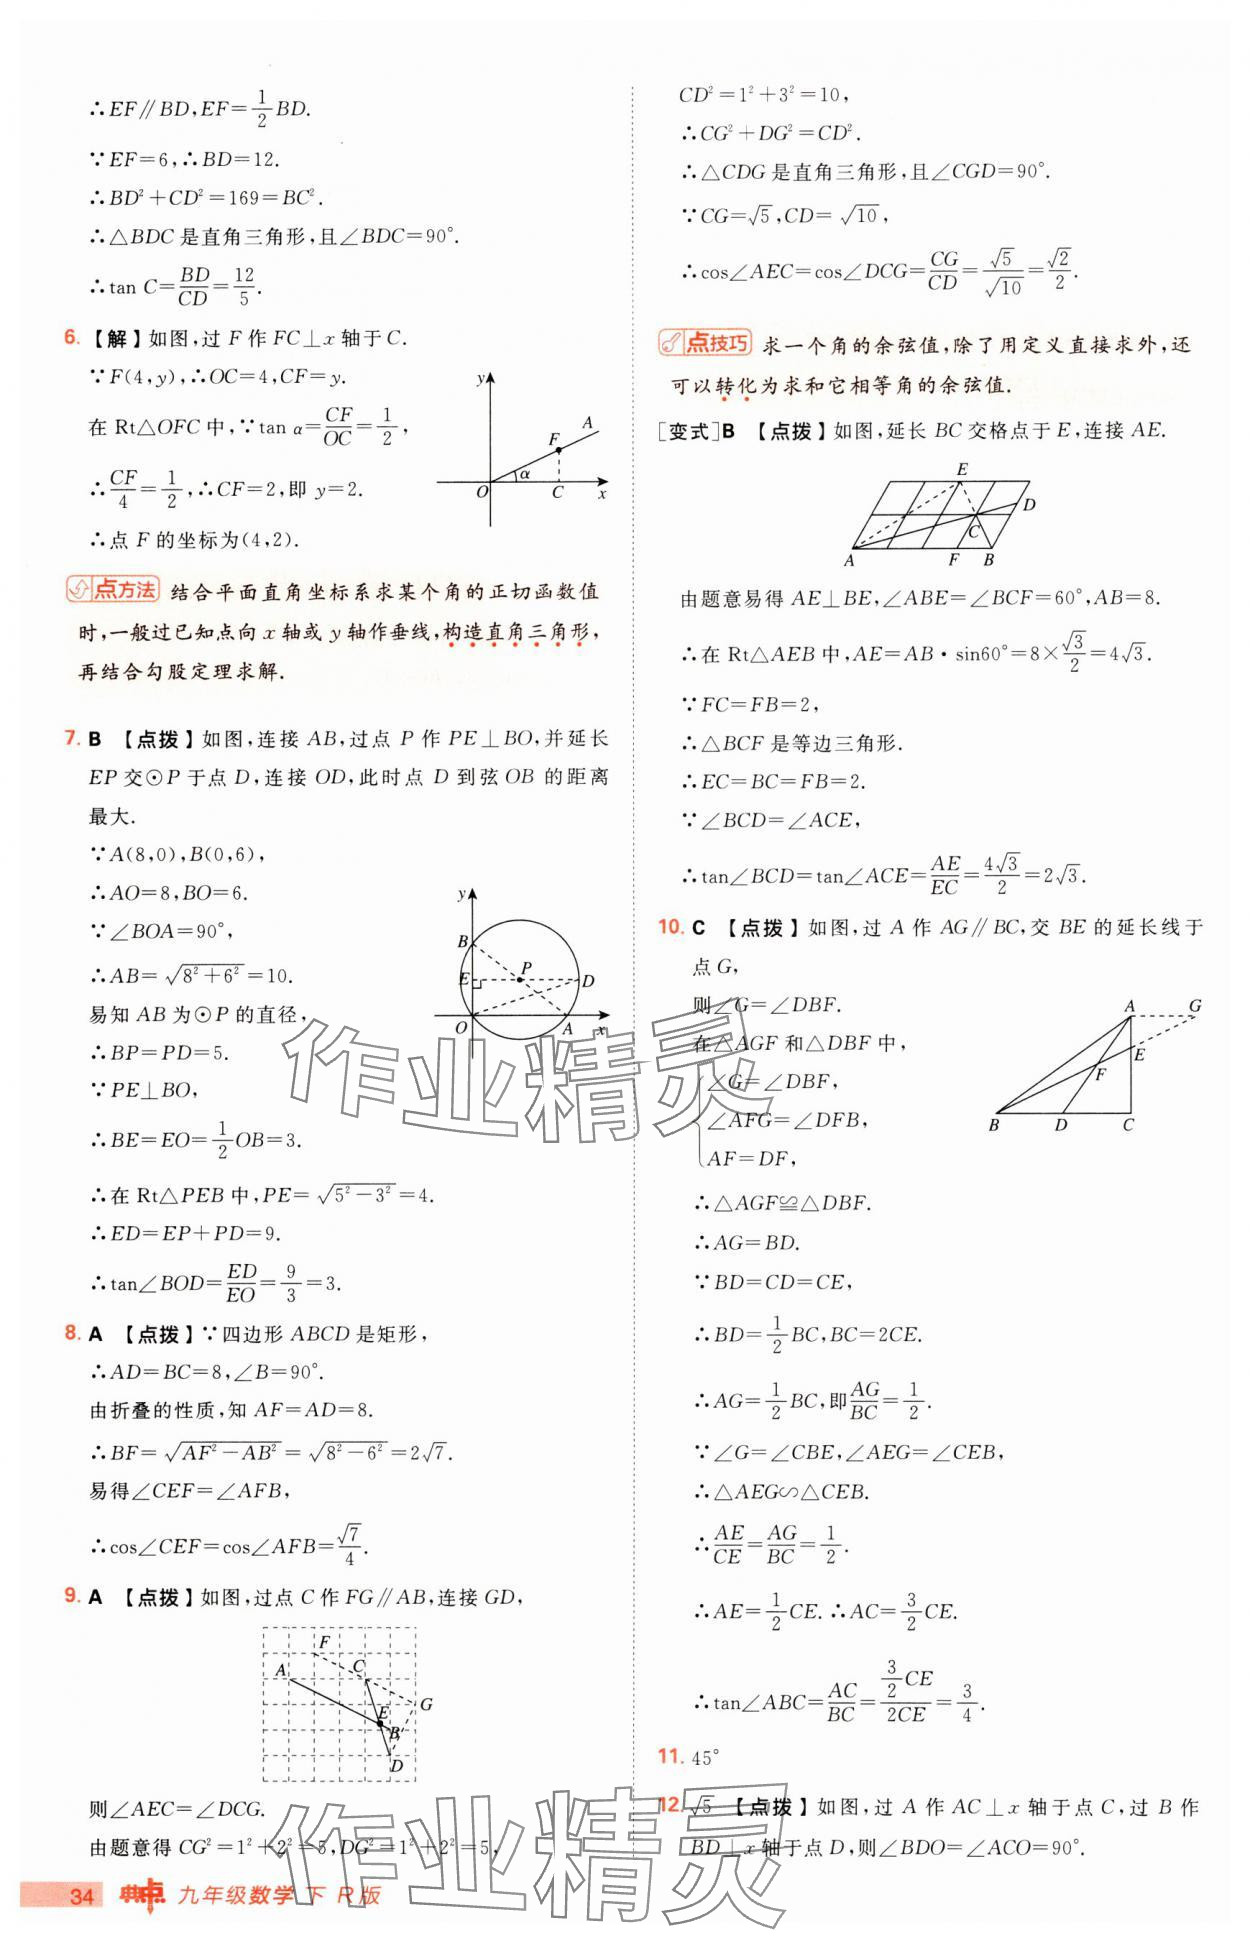 ∴EF∥BD,EF=1/2BD.
∵EF=6,∴BD=12.
∴BD²+CD²=169=BC².
∴△BDC是直角三角形,且∠BDC=90°.
∴tan C=BD/CD=12/5.
6.【解】如图,过 F 作 FC⊥x 轴于C.
∵F(4,y),∴OC=4,CF=y.
在 Rt△OFC 中,∵tan α=CF/OC=1/2,
∴CF/4=1/2,∴CF=2,即 y=2.
∴点 F 的坐标为(4,2).
y
A
F
α
O
C
x
点方法 结合平面直角坐标系求某个角的正切函数值
时,一般过已知点向 x 轴或 y 轴作垂线,构造直角三角形,
再结合勾股定理求解.
7. B 【点拨】如图,连接 AB,过点 P 作 PE⊥BO,并延长
EP 交⊙P 于点 D,连接 OD,此时点 D 到弦 OB 的距离
最大.
∵A(8,0),B(0,6),
∴AO=8,BO=6.
∵∠BOA=90°,
∴AB=√(8²+6²)=10.
易知 AB 为⊙P 的直径,
∴BP=PD=5.
∵PE⊥BO,
∴BE=EO=1/2OB=3.
∴在 Rt△PEB 中,PE=√(5²-3²)=4.
∴ED=EP+PD=9.
∴tan∠BOD=ED/EO=9/3=3.
y
B
P
E
D
O
A
x
8. A 【点拨】∵四边形 ABCD 是矩形,
∴AD=BC=8,∠B=90°.
由折叠的性质,知 AF=AD=8.
∴BF=√(AF²-AB²)=√(8²-6²)=2√7.
易得∠CEF=∠AFB,
∴cos∠CEF=cos∠AFB=√7/4.
9. A 【点拨】如图,过点 C 作 FG∥AB,连接 GD,
F
A
C
G
E
B
D
则∠AEC=∠DCG.
由题意得 CG²=1²+2²=5,DG²=1²+2²=5,
34 典中点 九年级数学 下 R版
CD²=1²+3²=10,
∴CG²+DG²=CD².
∴△CDG 是直角三角形,且∠CGD=90°.
∵CG=√5,CD=√10,
∴cos∠AEC=cos∠DCG=CG/CD=√5/√10=√2/2.
点技巧 求一个角的余弦值,除了用定义直接求外,还
可以转化为求和它相等角的余弦值.
[变式]B 【点拨】如图,延长 BC 交格点于 E,连接 AE.
E
D
C
A
F
B
由题意易得 AE⊥BE,∠ABE=∠BCF=60°,AB=8.
∴在 Rt△AEB 中,AE=AB·sin60°=8×√3/2=4√3.
∵FC=FB=2,
∴△BCF 是等边三角形.
∴EC=BC=FB=2.
∵∠BCD=∠ACE,
∴tan∠BCD=tan∠ACE=AE/EC=4√3/2=2√3.
10. C 【点拨】如图,过 A 作 AG∥BC,交 BE 的延长线于
点 G,
则∠G=∠DBF.
在△AGF 和△DBF 中,
∠G=∠DBF,
∠AFG=∠DFB,
AF=DF,
A
G
E
F
B
D
C
∴△AGF≌△DBF.
∴AG=BD.
∵BD=CD=CE,
∴BD=1/2BC,BC=2CE.
∴AG=1/2BC,即AG/BC=1/2.
∵∠G=∠CBE,∠AEG=∠CEB,
∴△AEG∽△CEB.
∴AE/CE=AG/BC=1/2.
∴AE=1/2CE.∴AC=3/2CE.
∴tan∠ABC=AC/BC=(3/2CE)/2CE=3/4.
11. 45°
12. √5 【点拨】如图,过 A 作 AC⊥x 轴于点 C,过 B 作
BD⊥x 轴于点 D,则∠BDO=∠ACO=90°.
作业精灵
作业精灵